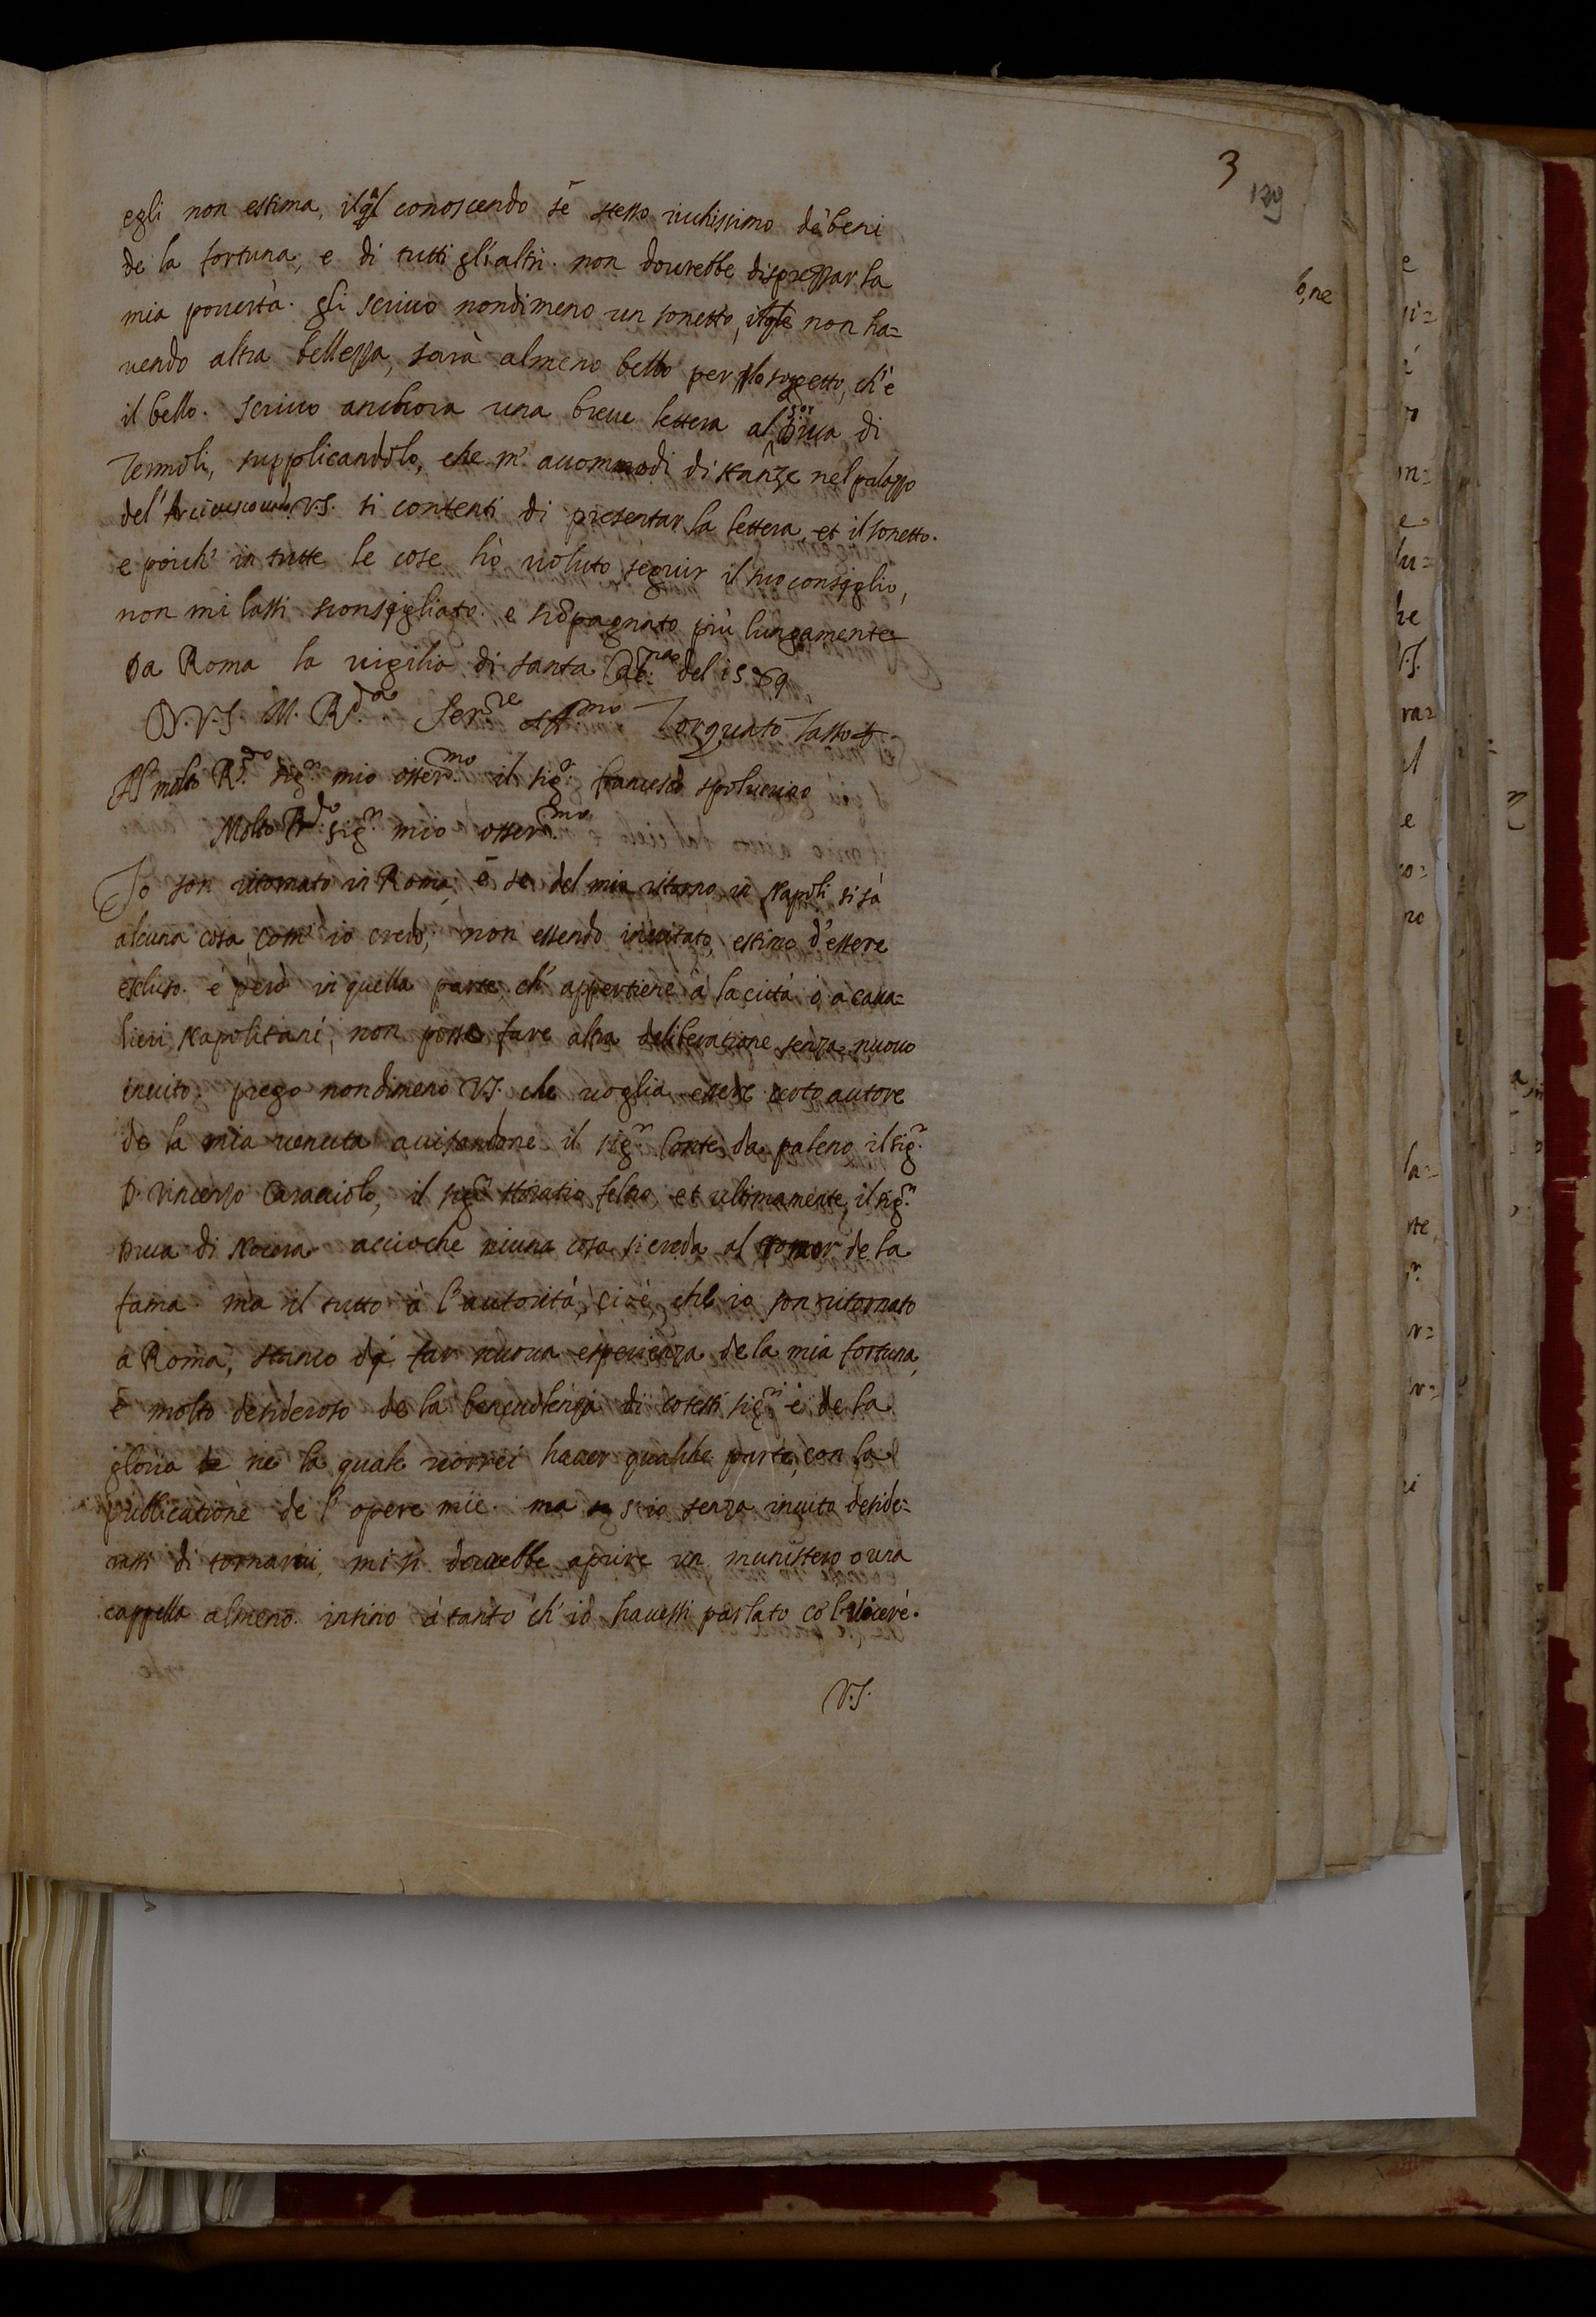 3
139
egli non estima, ilql conoscendo sè stesso ricchissimo de' beni
de la fortuna, e di tutti gli altri. non dourebbe disprezzar la
mia pouertà. gli scriuo nondimeno un sonetto, ilqle non ha=
uendo altra bellezza, sarà almeno bello per lo sogetto, ch'è
il bello. scriuo anchora una breue lettera al s.or Duca di
Termoli, supplicandolo, che m' accommodi di stanze nel palazzo
del' Arciuescouado. V.S. si contenti di presentar la lettera, et il sonetto.
e poich' in tutte le cose hò uoluto seguir il suo consiglio,
non mi lassi sconsigliato. e scōpagnato più lungamente
Da Roma la uigilia di santa Cat.na del 1589
D.V.S. M. R.da Ser.re aff.mo Torquato Tasso
Al molto R.do sig.r mio osser.mo il sig.r francesco spoluerino
Molto R.do sig.r mio osser.mo
Io son ritornato in Roma, e se del mio ritorno in Napoli si sà
alcuna cosa, com' io credo, non essendo inuitato, estimo d'essere
escluso. e però in quella parte, ch' appertiene à la città ò a caua=
lieri Napolitani, non posso fare altra deliberatione senza nuouo
inuito. prego nondimeno V.S. che uoglia essere certo autore
de la mia uenuta auisandone il sig.r Conte da paleno, il sig.r
D. Vincenzo Caracciolo, il sig.r Horatio feltro, et ultimamente, il sig.r
Duca di Nocera. accioche niuna cosa si creda al romor de la
fama. mà il tutto à l'autorità, cioè, che io son ritornato
à Roma, stanco di far nuoua esperienza de la mia fortuna,
e molto desideroso de la beneuolenza di cotesti sig.ri e de la
gloria ne la quale uorrei hauer qualche parte, con la
publicatione de l' opere mie. ma s' io senza inuito deside=
rassi di tornarui, mi si dourebbe aprire un munistero o una
cappella almeno. insino à tanto ch' io hauessi parlato co 'l Vicerè.
V.S.